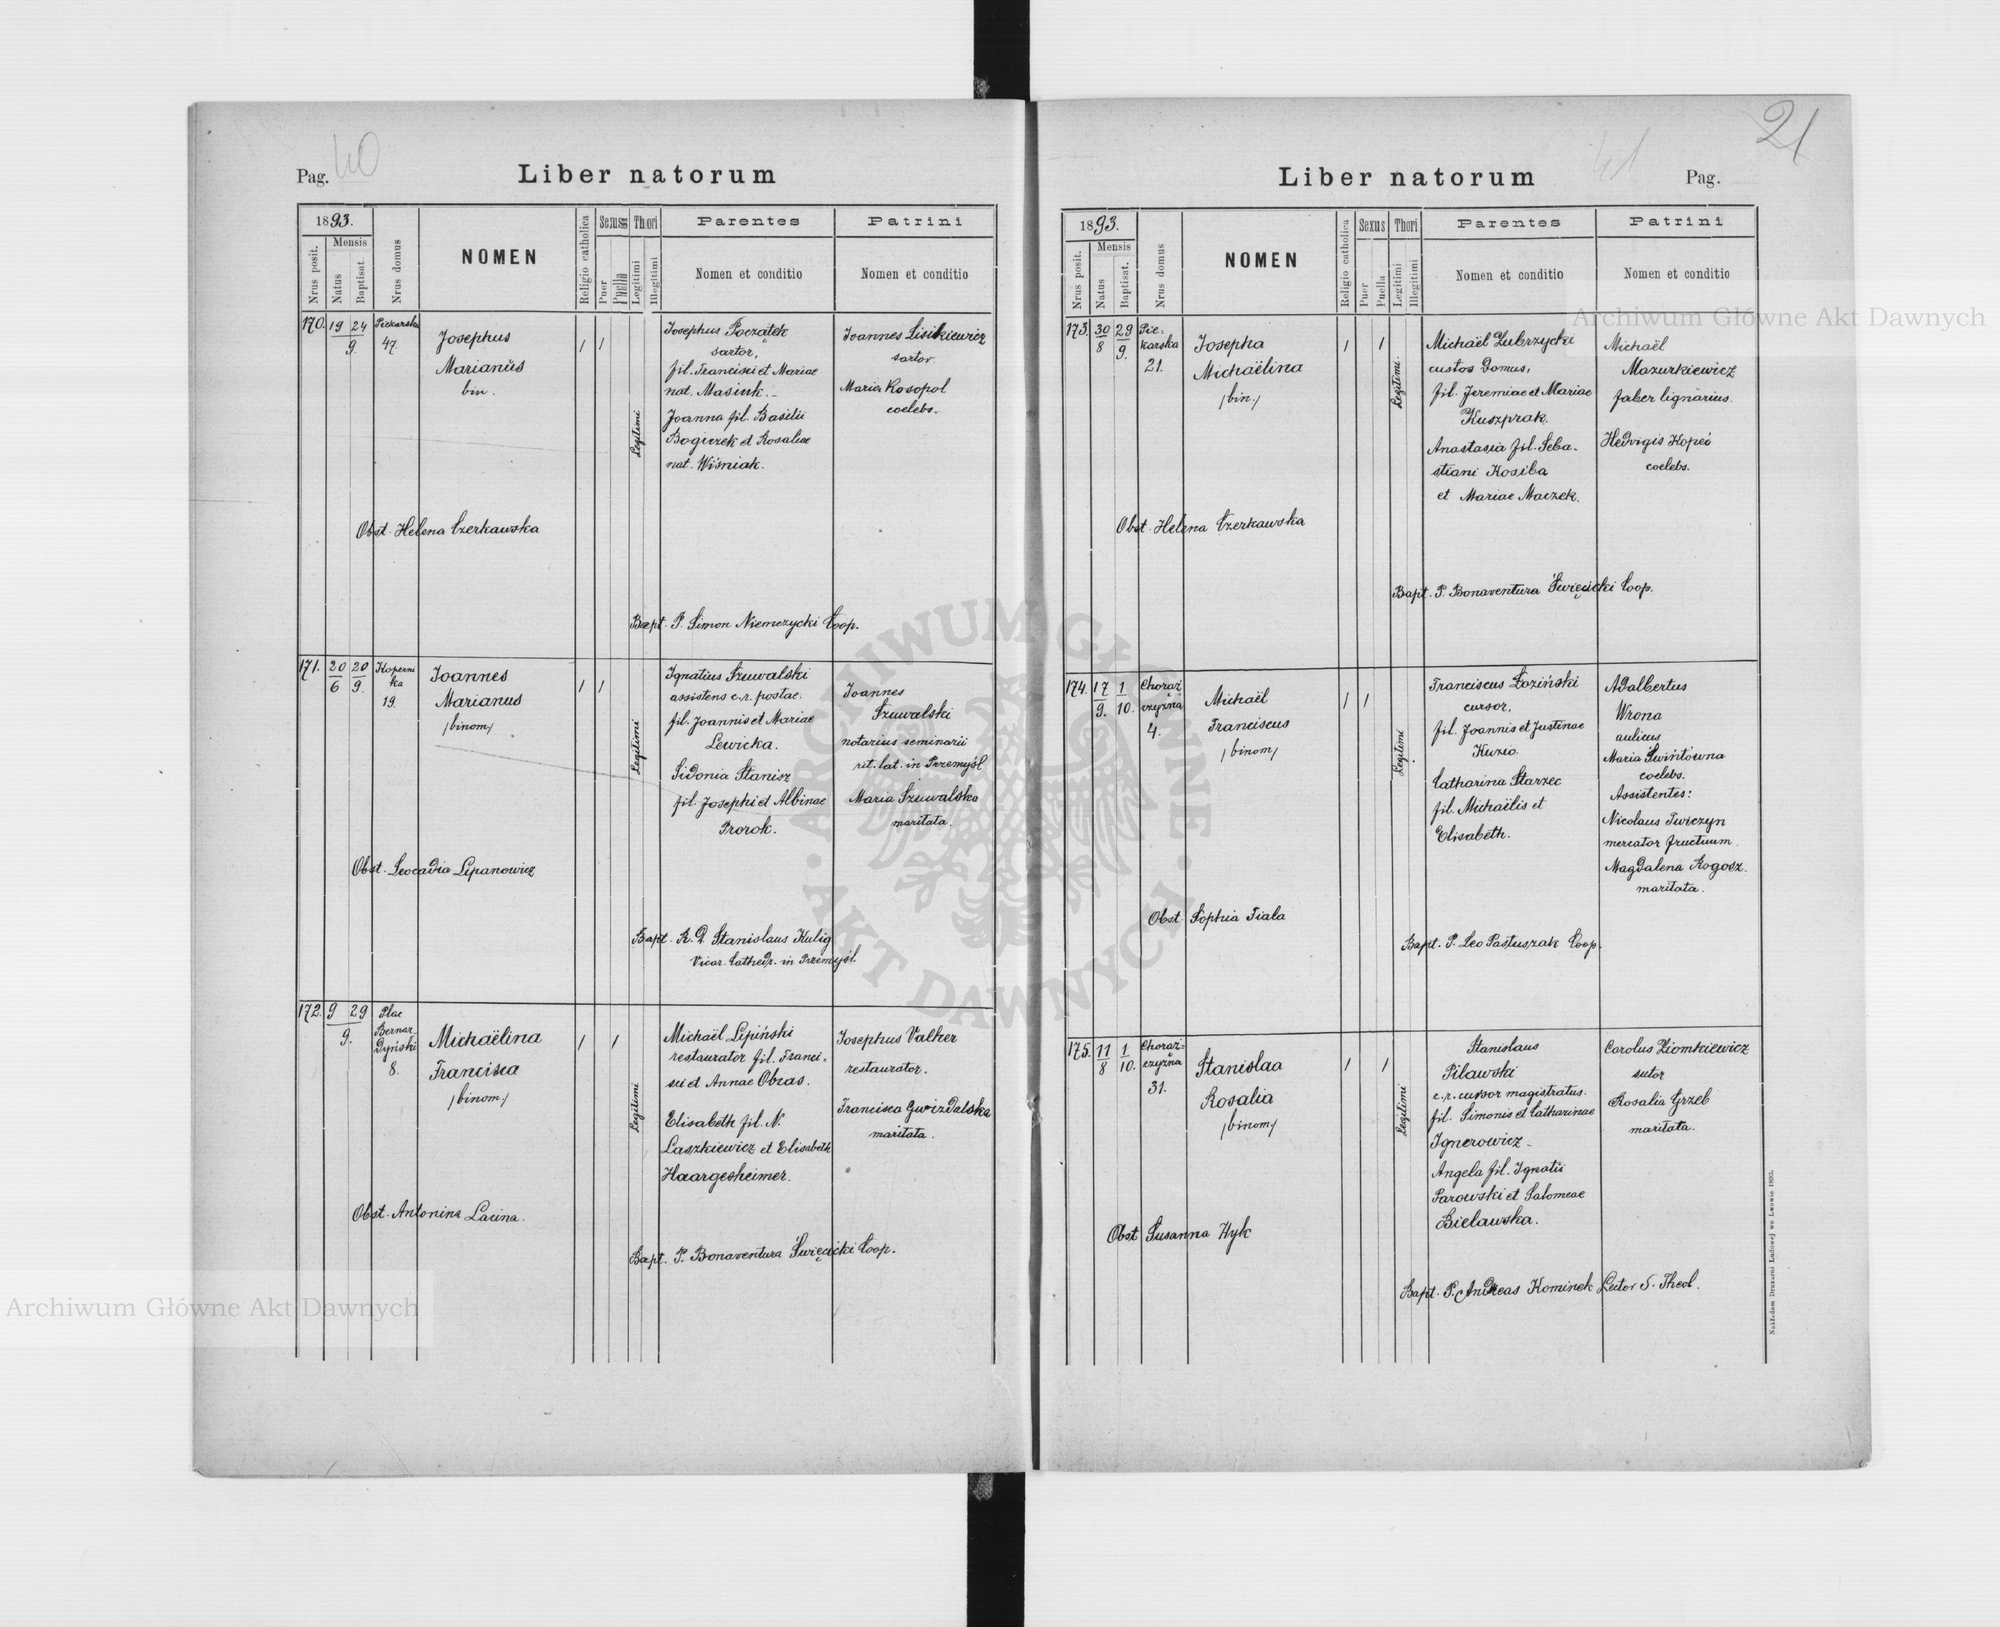 Pag. 40
Liber natorum
1893.
Nrus posit.
Mensis
Natus
Baptisat.
Nrus domus
NOMEN
Religio catholica
Sexus
Puer
Puella
Thori
Legitimi
Illegitimi
Parentes
Nomen et conditio
Patrini
Nomen et conditio
170. 19 24 9. Piekarska 47.
Josephus
Marianus
bin.
1 1
Legitimi
Josephus Początek
sartor,
fil. Francisci et Mariae
nat. Masiuk.
Joanna fil. Basilii
Boguzek et Rosaliae
nat. Wiśniak.
Joannes Lisikiewicz
sartor.
Maria Kosopol
coelebs.
Obst. Helena Czerkawska
Bapt. P. Simon Niemczycki Coop.
171. 20/6 20/9. Koperni
ka
19.
Joannes
Marianus
/binom/
1 1
Legitimi
Ignatius Szuwalski
assistens c.r. postae.
fil. Joannis et Mariae
Lewicka.
Sidonia Stanisz
fil. Josephi et Albinae
Prorok.
Joannes
Szuwalski
notarius seminarii
rit. lat. in Przemyśl
Maria Szuwalska
maritata.
Obst. Leocadia Lipanowicz
Bapt. R. D. Stanislaus Kulig
Vicar. Cathedr. in Przemyśl.
172. 9 29 9. Plac
Bernar
dyński
8.
Michaëlina
Francisca
/binom/
1 1
Legitimi
Michaël Lipiński
restaurator fil. Franci-
sci et Annae Obras.
Elisabeth fil. N.
Laszkiewicz et Elisabeth
Haargesheimer.
Josephus Valker
restaurator.
Francisca Gwizdalska
maritata.
Obst. Antonina Lacina.
Bapt. P. Bonaventura Święcicki Coop.
21
Liber natorum
41
Pag.
1893.
Nrus posit.
Mensis
Natus
Baptisat.
Nrus domus
NOMEN
Religio catholica
Sexus
Puer
Puella
Thori
Legitimi
Illegitimi
Parentes
Nomen et conditio
Patrini
Nomen et conditio
173. 30/8 29/9. Pie-
karska
21.
Josepha
Michaëlina
/bin./
1 1
Legitimi.
Michaël Zubrzycki
custos domus,
fil. Jeremiae et Mariae
Kuszprak.
Anastasia fil. Seba-
stiani Kosiba
et Mariae Maczek.
Michaël
Mazurkiewicz
faber lignarius.
Hedvigis Kopeć
coelebs.
Obst. Helena Czerkawska
Bapt. P. Bonaventura Święcicki Coop.
174. 17/9. 1/10. Chorąż
czyzna
4.
Michaël
Franciscus
/binom/
1 1
Legitimi
Franciscus Łoziński
cursor,
fil. Joannis et Justinae
Kuzio.
Catharina Starzec
fil. Michaëlis et
Elisabeth.
Adalbertus
Wrona
aulicus
Maria Świntówna
coelebs.
Assistentes:
Nicolaus Twiczyn
mercator fructuum.
Magdalena Rogosz.
maritata.
Obst. Sophia Fiala
Bapt. P. Leo Pastuszak Coop.
175. 11/8 1/10. Chorąż-
czyzna
31.
Stanislaa
Rosalia
/binom/
1 1
Legitimi
Stanislaus
Pilawski
c.r. cursor magistratus.
fil. Simonis et Catharinae
Ignerowicz
Angela fil. Ignatii
Parowski et Salomeae
Bielawska.
Carolus Ziomkiewicz
sutor
Rosalia Grzeb
maritata.
Obst. Susanna Hyk
Bapt. P. Andreas Kominek Lector S. Theol.
Nakładem Drukarni Ludowej we Lwowie 1893.
Archiwum Główne Akt Dawnych
Archiwum Główne Akt Dawnych
ARCHIWUM GŁÓWNE
AKT DAWNYCH